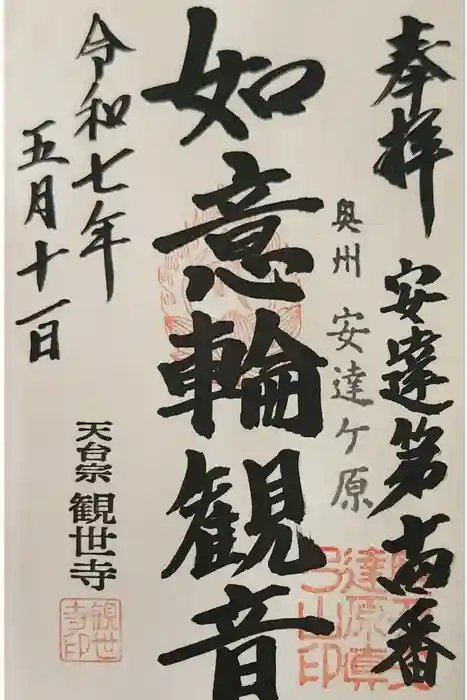 奉拝 安達第番
奥州 安達ケ原
如意輪観音
令和七年
五月十一日
天台宗 観世寺
観世寺印